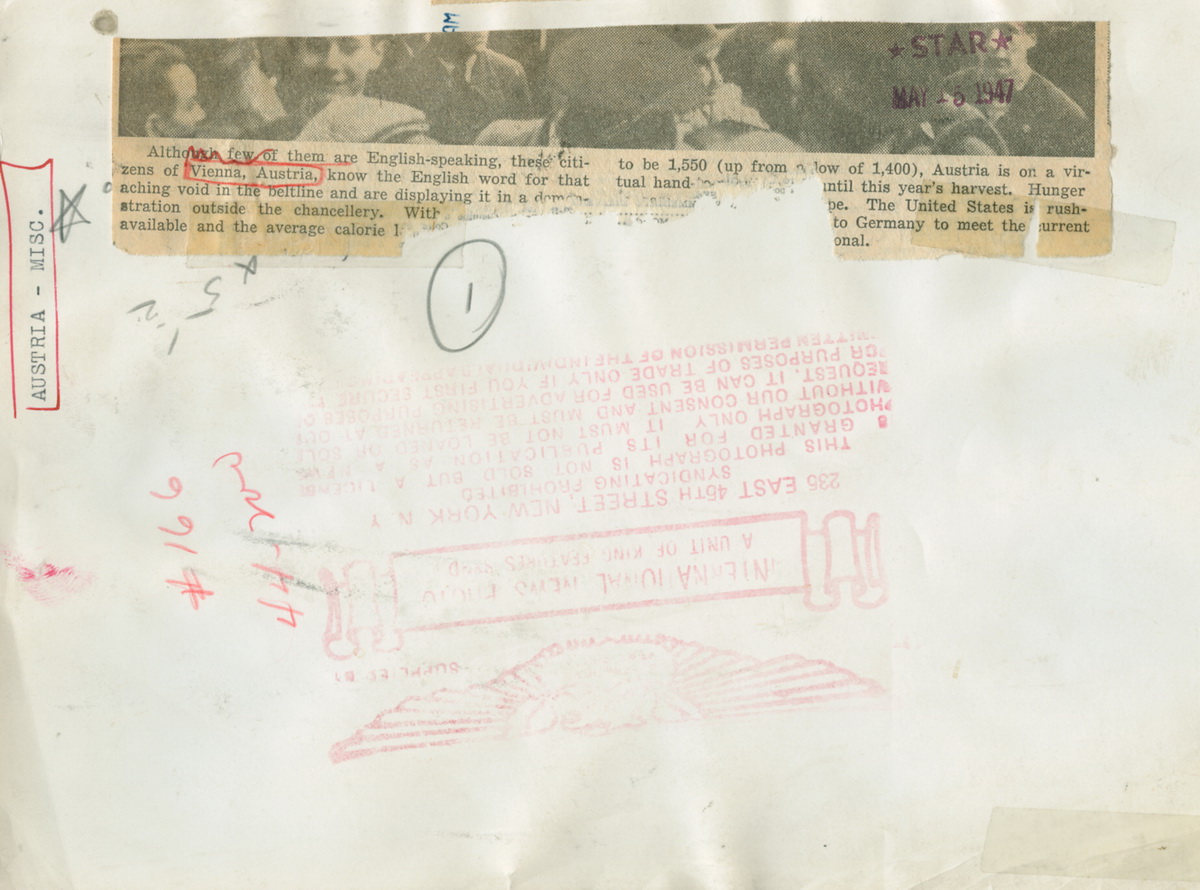 AM
★STAR★
MAY 15 1947
Although few of them are English-speaking, these citi-
zens of Vienna, Austria, know the English word for that
aching void in the beltline and are displaying it in a demon-
stration outside the chancellery. With
available and the average calorie
to be 1,550 (up from a low of 1,400), Austria is on a vir-
tual hand-
until this year's harvest. Hunger
The United States is rush-
to Germany to meet the current
onal.
AUSTRIA - MISC.
1
SUPPLIED BY
INTERNATIONAL NEWS PHOTO
A UNIT OF KING FEATURES
235 EAST 45TH STREET, NEW YORK N Y
SYNDICATING PROHIBITED
THIS PHOTOGRAPH IS NOT SOLD BUT A LICENSE
GRANTED FOR ITS PUBLICATION AS A NEWS
PHOTOGRAPH ONLY IT MUST NOT BE LOANED OR SOLD
WITHOUT OUR CONSENT AND MUST BE RETURNED AT OUR
REQUEST. IT CAN BE USED FOR ADVERTISING PURPOSES O
FOR PURPOSES OF TRADE ONLY IF YOU FIRST SECURE
WRITTEN PERMISSION OF THE INDIVIDUALS APPEARING
# 166